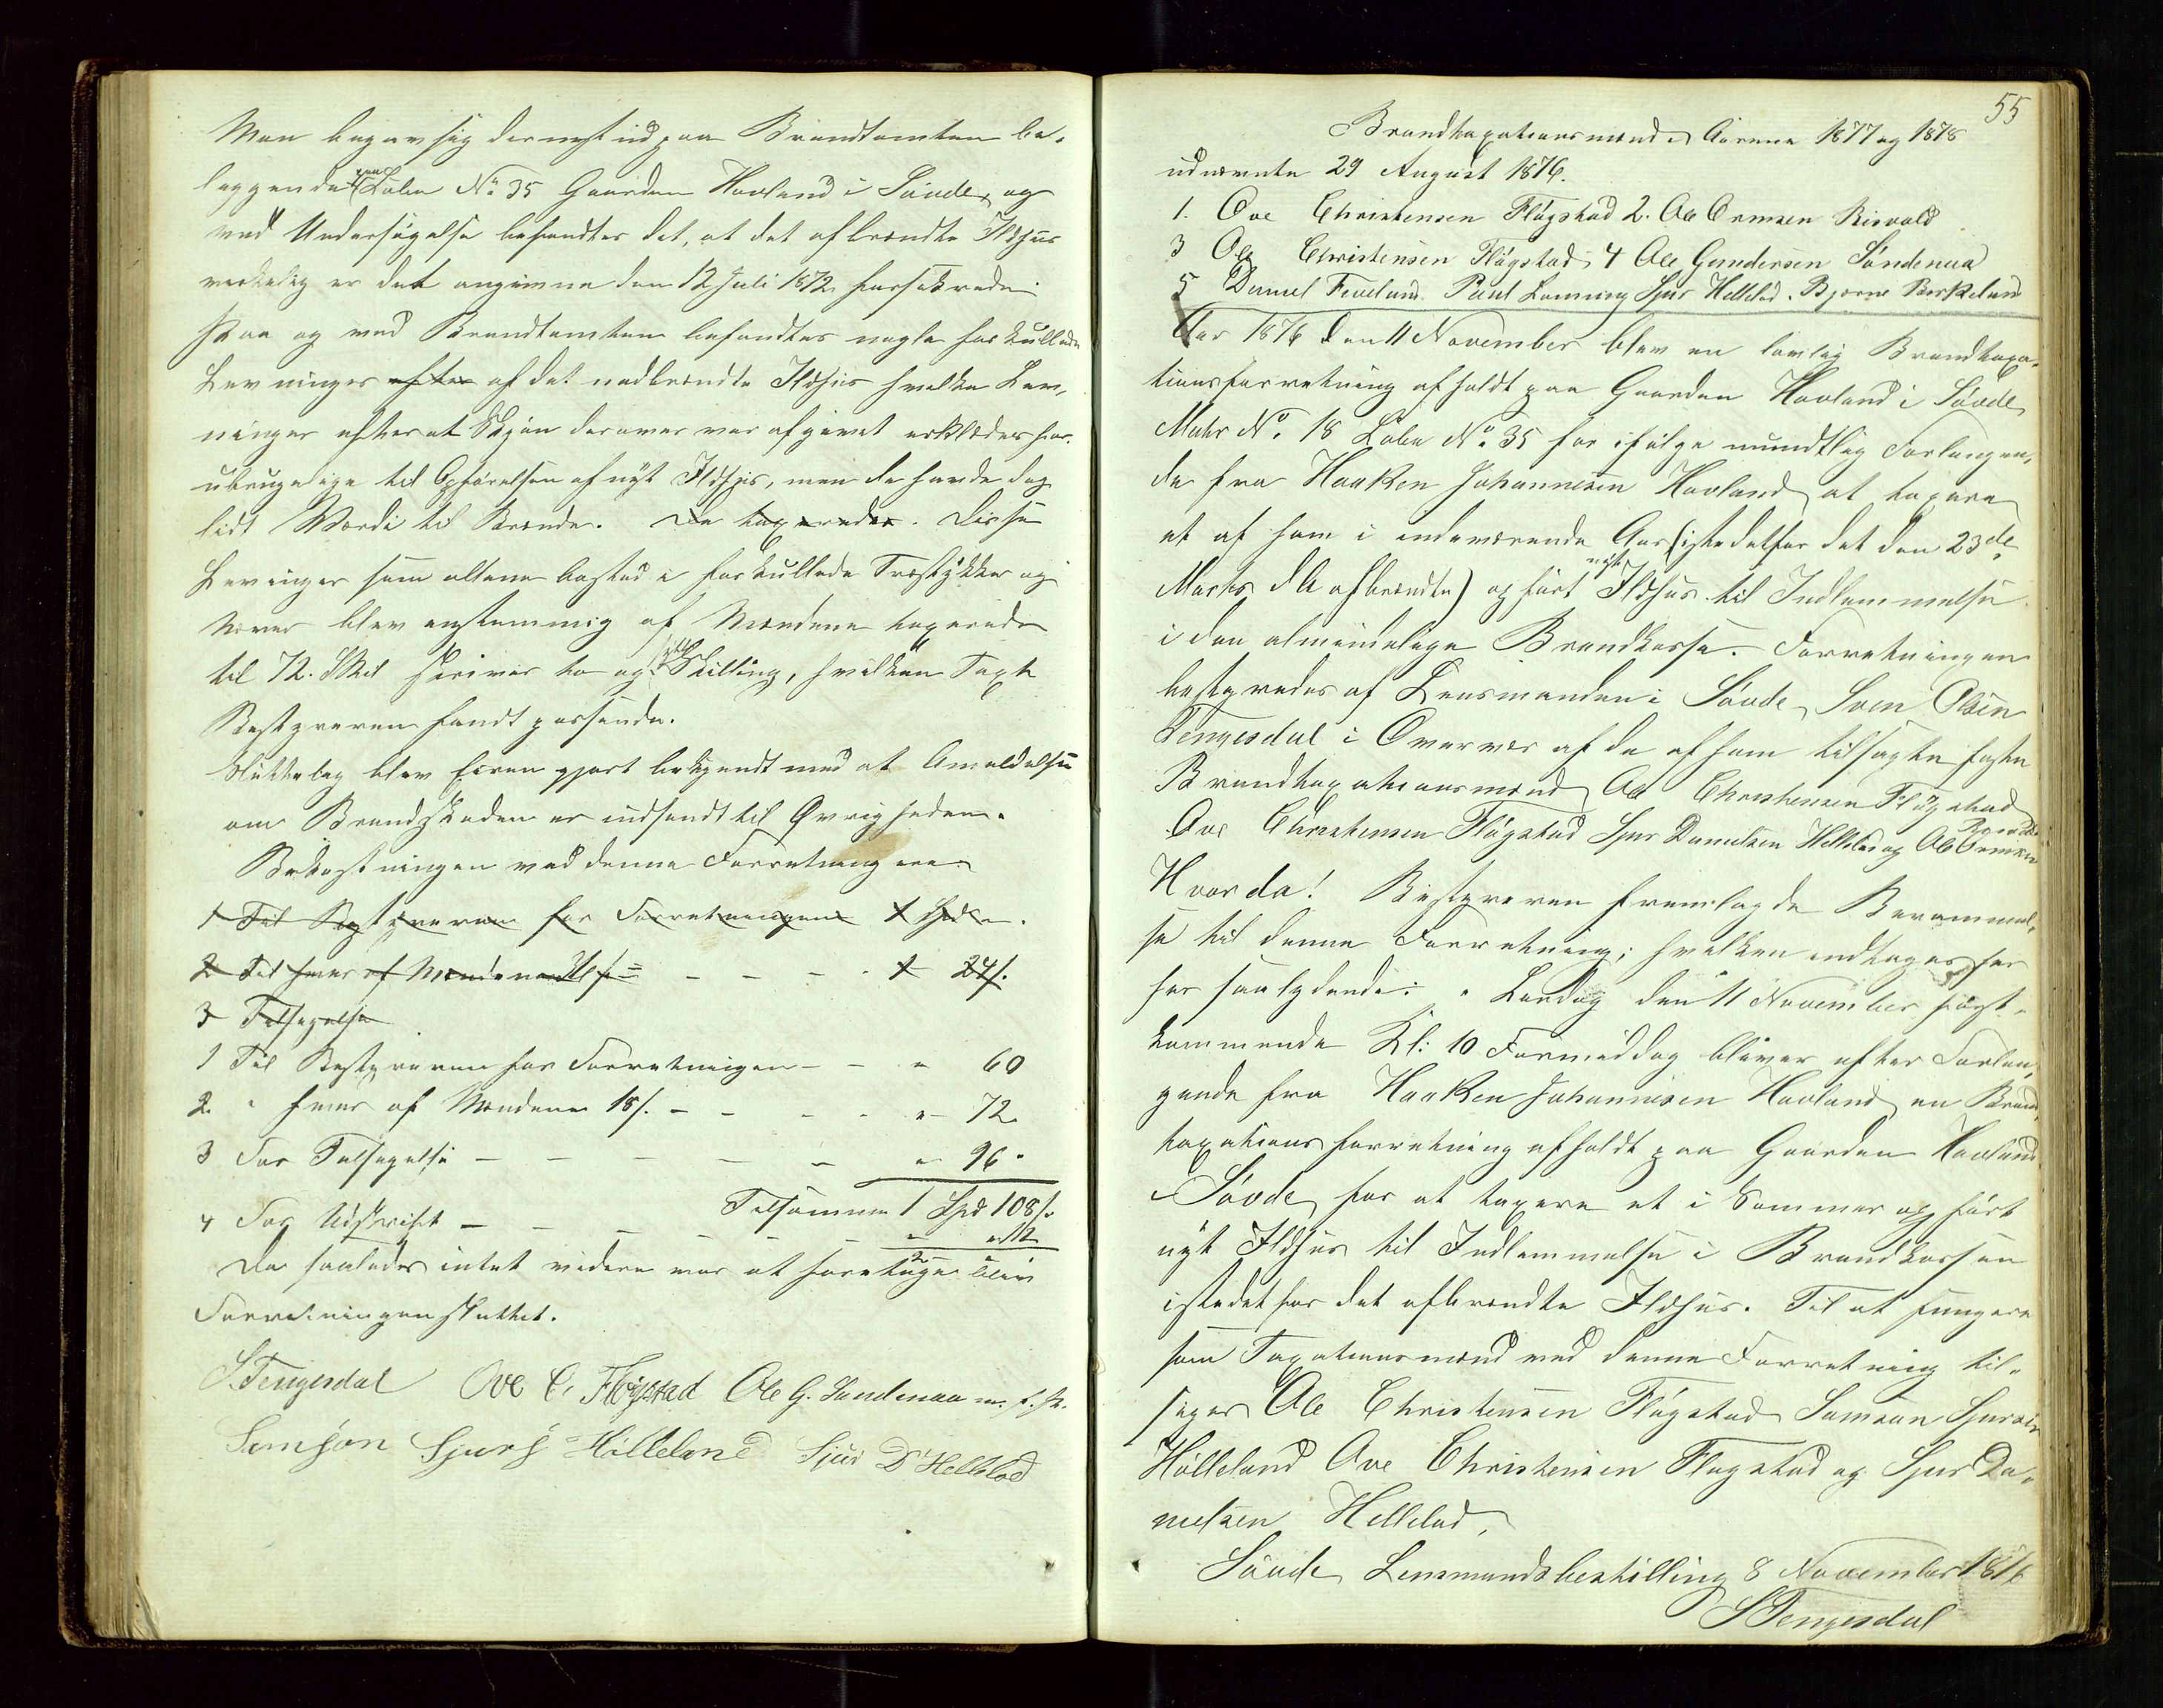 Man begav sig dernæst ud paa Brandtomten be-
liggende paa Løbe No 35 Gaarden Havland i Søvde, og
ved Undersøgelse befandtes det, at det afbrændte Ildhus
verkelig er det angivne den 12 Juli 1872 forsikrede.
Paa og ved Brandtomten befandtes nogle forkullede
Levninger efter af det nedbrændte Ildhus hvilke Lev-
ninger efterat Skjøn derover var afgivet erklædes for
ubrugelige til Opførelsen af nyt Ildhus, men de havde dog
lidt Værdi til Brænde. De taxeredes. Disse
Levninger som allene bestod i forkullede Træstykker og
Næver blev enstemmig af Mændene taxerede
til 72. Skil skriver to og sytti Skilling, hvilken Taxt
Bestyreren fandt passende.
Slutteleg blev Eieren gjort bekjendt med at Anmeldelsen
om Brandskaden er indsendt til Øvrigheden.
Bekostningen ved denne Forretning ere:
1 Til Bestyreren for Forretningen 1 Spd.
2 Til hver af Mændene 1 24 s.
3 Tilsigelse
1 Til Bestyreren for Forretningen - - " 60
2. " hver af Mændene 18 s. - - - - " 72
3 For Tilsigelse - - - - - " 96 "
Tilsammen 1 Spd 108 s.
4 For Udskrift - - - - - -
Da saaledes intet videre var at foretage blev
Forretningen sluttet.
S. Tengesdal Ove C. Fløgstad Ole G. Søndenaa m. f. P.
Samson Sjurs. Hølleland Sjur D. Helleland
55
Brandtaxationsmænd i Aarene 1877 og 1878
udnævnte 29 August 1876.
1. Ove Christensen Fløgstad 2. Ole Ormsen Risvold
3 Ole Christensen Fløgstad 4 Ole Gundersen Søndenaa
5 Daniel Poul Lonning Sjur Helleland. Bjørne Birkeland
Aar 1876 den 11 November blev en lovlig Brandtaxa-
tionsforretning afholdt paa Gaarden Havland i Søvde
Matr No. 18 Løbe No. 35 for ifølge mundtlig Forlangen-
de fra Haaken Johannesen Havland at taxere
et af ham i indeværende Aar (istedetfor det den 23de
Marts d A afbrændte) opført nyt Ildhus til Indlemmelse
i den almindelige Brandkasse. Forretningen
bestyredes af Lensmanden i Søvde, Sven Olsen
Tengesdal i Overvær af de af ham tilsagte faste
Brandtaxationsmænd Ole Christensen Fløgstad
Ove Christensen Fløgstad Sjur Danielsen Helleland og Ole Ormsen Risvold
Hvorda! Bestyreren fremlagde Berammel-
se til denne Forretning; hvilken indtages her
for saalydende: " Lørdag den 11 November først-
kommende Kl: 10 Formiddag bliver efter Forlan-
gende fra Haaken Johannesen Havland en Brand-
taxations forretning afholdt paa Gaarden Havland
i Søvde for at taxere et i Sommer opført
nyt Ildhus til Indlemmelse i Brandkassen
istedetfor det afbrændte Ildhus. Til at fungere
som Taxationsmænd ved denne Forretning til-
siges Ole Christensen Fløgstad Samson Sjursen
Hølleland Ove Christensen Fløgstad og Sjur Da-
nielsen Helleland.
Søvde Lensmandsbestilling 8 November 1876
S Tengesdal